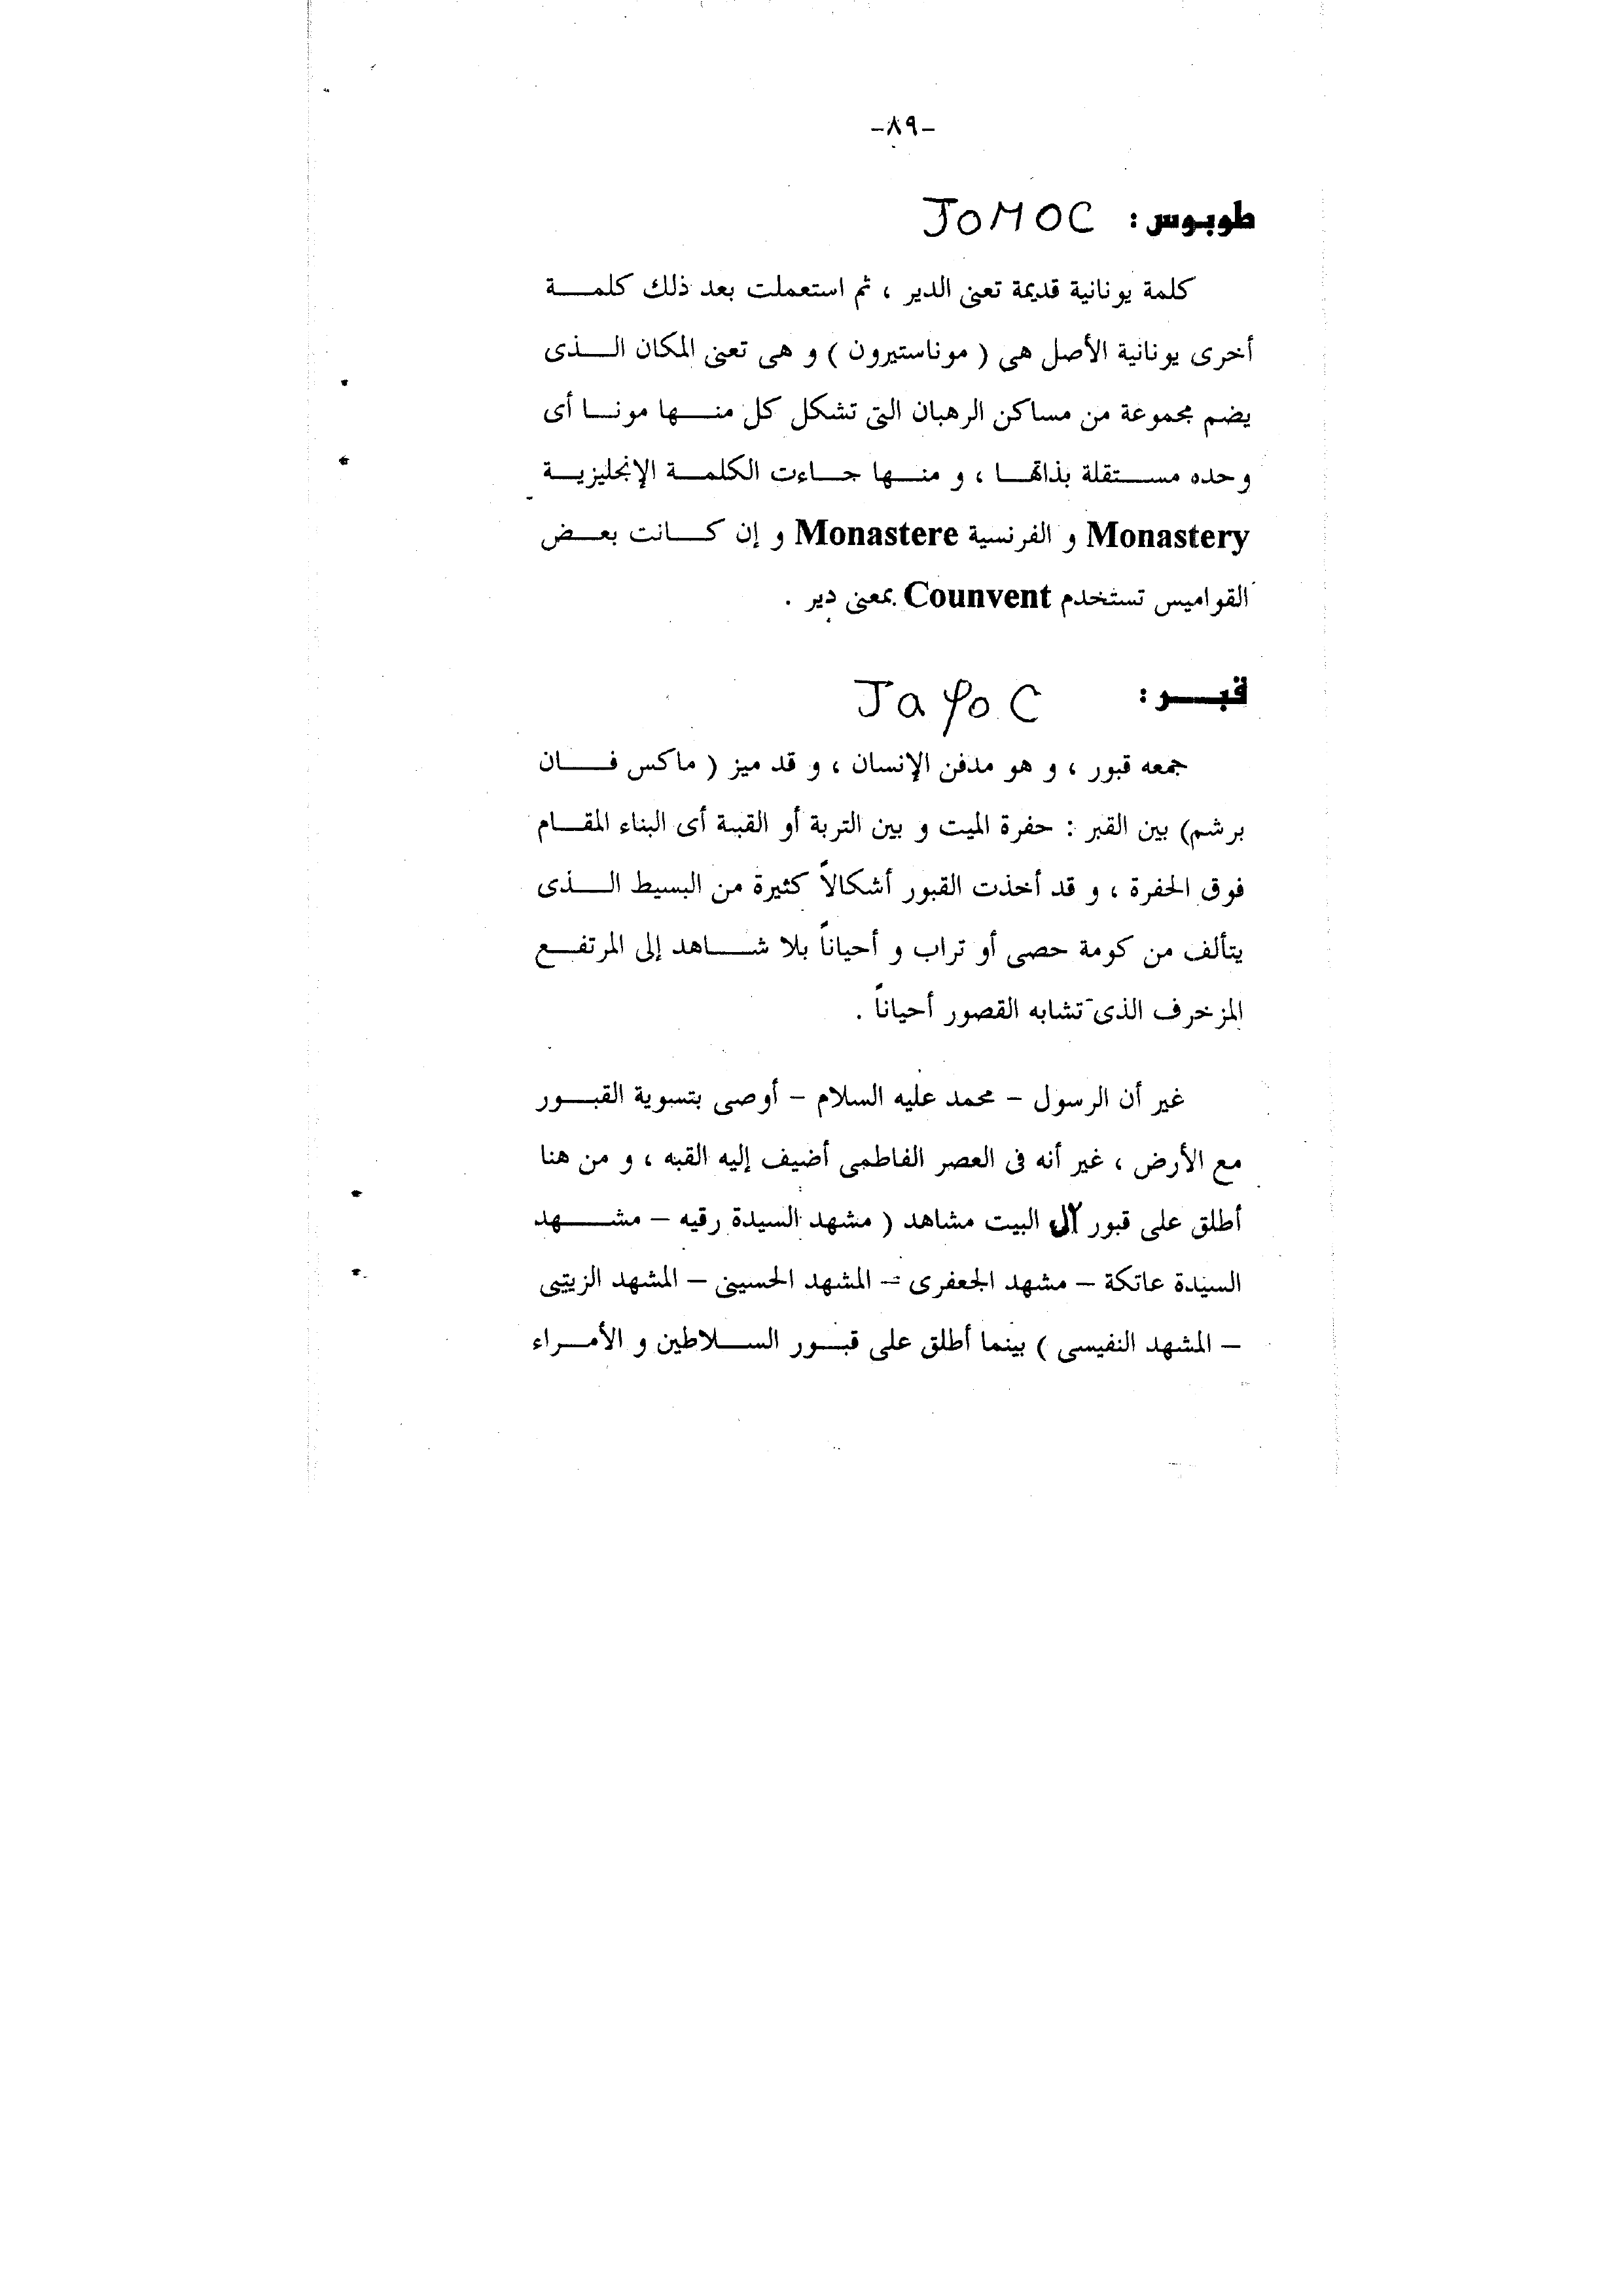 -٨٩-
طوبوس : JOMOC
كلمة يونانية قديمة تعنى الدير ، ثم استعملت بعد ذلك كلمة
أخرى يونانية الأصل هى ( موناستيرون ) و هى تعنى المكان الذى
يضم مجموعة من مساكن الرهبان التى تشكل كل منها مونا أى
وحده مستقلة بذاتها ، و منها جاءت الكلمة الإنجليزية
Monastery و الفرنسية Monastere و إن كانت بعض
القواميس تستخدم Counvent بمعنى دير .
قبر : JaφoC
جمعه قبور ، و هو مدفن الإنسان ، و قد ميز ( ماكس فان
برشم) بين القبر : حفرة الميت و بين التربة أو القبة أى البناء المقام
فوق الحفرة ، و قد أخذت القبور أشكالاً كثيرة من البسيط الذى
يتألف من كومة حصى أو تراب و أحياناً بلا شاهد إلى المرتفع
المزخرف الذى تشابه القصور أحياناً .
غير أن الرسول – محمد عليه السلام – أوصى بتسوية القبور
مع الأرض ، غير أنه فى العصر الفاطمى أضيف إليه القبه ، و من هنا
أطلق على قبور آل البيت مشاهد ( مشهد السيدة رقيه – مشهد
السيدة عاتكة – مشهد الجعفرى – المشهد الحسينى – المشهد الزينبى
– المشهد النفيسى ) بينما أطلق على قبور السلاطين و الأمراء